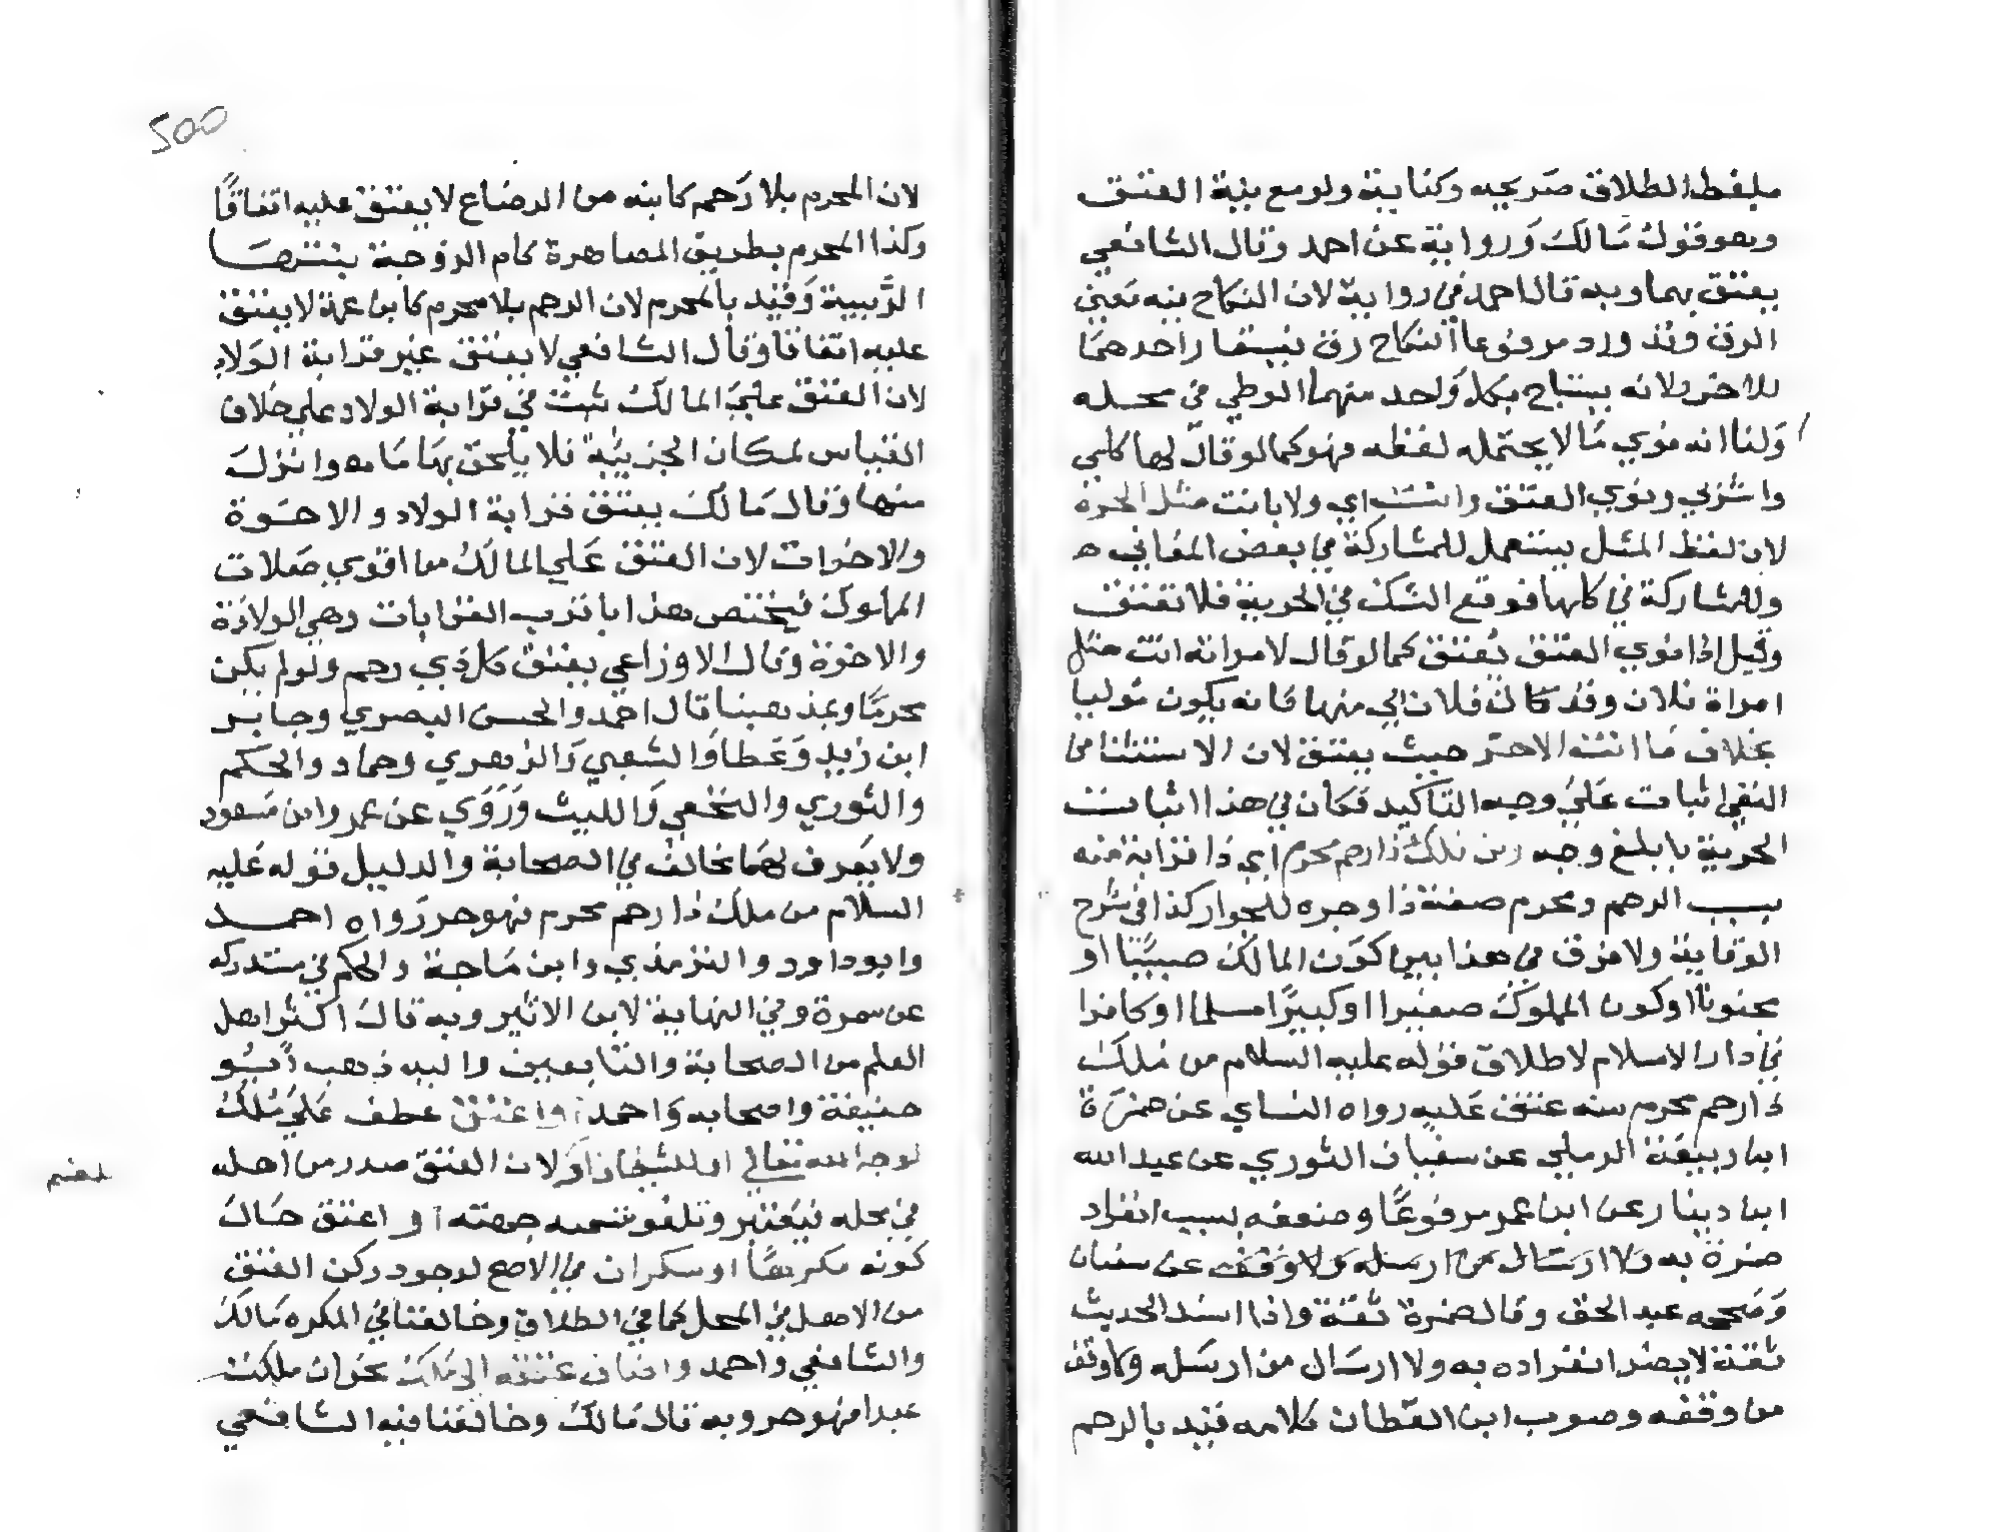 بلفظ الطلاق صريحه وكناية ولو مع نية العتق
وهو قول مالك ورواية عن احمد وقال الشافعي
يعتق بهما وبه قال احمد في رواية لان النكاح فيه معنى
الرق وقد ورد مرفوعا النكاح رق
للاخر ولانه يستباح بكل واحد منهما الوطي في محله
ولنا انه نوي ما لا يحتمله لفظه فهو كما لو قال لها كلي
واشربي ونوي العتق وانتت اي ولا بانت مثل الحرة
لان لفظ المثل يستعمل للمشاركة في بعض المعاني
وللمشاركة في كلها فوقع الشك في الحرية فلا تعتق
وقيل اذا نوي العتق يعتق كما لو قال لامراته انت مثل
امراة فلان وقد كان فلان الى منها فانه يكون موليا
بخلاف ما انت الا حر حيث يعتق لان الاستثنا من
النفي اثبات علي وجه التاكيد فكان في هذا اثبات
الحرية بابلغ وجه ومن ملك ذا رحم محرم اي ذا قرابة منه
بسبب الرحم ومحرم صفة ذا وجره للجوار كذا في شرح
الوقاية ولا فرق في هذا بين كون المالك صبيا او
مجنونا او كون المملوك صغيرا او كبيرا مسلما او كافرا
في دار الاسلام لاطلاق قوله عليه السلام من ملك
ذا رحم محرم منه عتق عليه رواه النساي عن ضمرة
ابن ربيعة الرملي عن سفيان الثوري عن عبد الله
ابن دينار عن ابن عمر مرفوعا وضعفه بسبب انفراد
ضمرة به ولا ارسال من ارسله ولا وقف عن سفيان
وصححه عبد الحق وقال ضمرة ثقة واذا اسند الحديث
ثقة لا يضر انفراده به ولا ارسال من ارسله ولا وقف
من وقفه وصوب ابن القطان كلامه قيد بالرحم
500
لان المحرم بلا رحم كابنه من الرضاع لا يعتق عليه اتفاقا
وكذا المحرم بطريق المصاهرة كام الزوجة بنتها
الربيبة وقيد بالمحرم لان الرحم بلا محرم كابن عمه لا يعتق
عليه اتفاقا وقال الشافعي لا يعتق غير قرابة الولاد
لان العتق علي المالك ثبت في قرابة الولاد علي خلاف
القياس لمكان الجزيية فلا يلحق بها ما هو انزل
منها وقال مالك يعتق قرابة الولاد والاخوة
والاخوات لان العتق علي المالك من اقوي صلات
المملوك فيختص هذا باقرب القرابات وهي الولادة
والاخوة وقال الاوزاعي يعتق كل ذي رحم ولو لم يكن
محرما وبمذهبنا قال احمد والحسن البصري وجابر
ابن زيد وعطا والشعبي والزهري وحماد والحكم
والثوري والنخعي والليث وروي عن عمر وابن مسعود
ولا يعرف لهما مخالف في الصحابة والدليل قوله عليه
السلام من ملك ذا رحم محرم فهو حر رواه احمد
وابو داود والترمذي وابن ماجة والحكم في مستدركه
عن سمرة وفي النهاية لابن الاثير وبه قال اكثر اهل
العلم من الصحابة والتابعين واليه ذهب ابو
حنيفة واصحابه واحمد او اعتق عطف علي ملك
لوجه الله تعالي او للشيطان او لان العتق صدر من اهله
في محله فيعتبر وتلغو تسميه جهته او اعتق حال
كونه مكرها او سكران في الاصح لوجود ركن العتق
من الاهل في المحل كما في الطلاق وخالفنا في المكره مالك
والشافعي واحمد واضاف عتقه الى ملك نحو ان ملكت
عبدا فهو حر وبه قال مالك وخالفنا فيه الشافعي